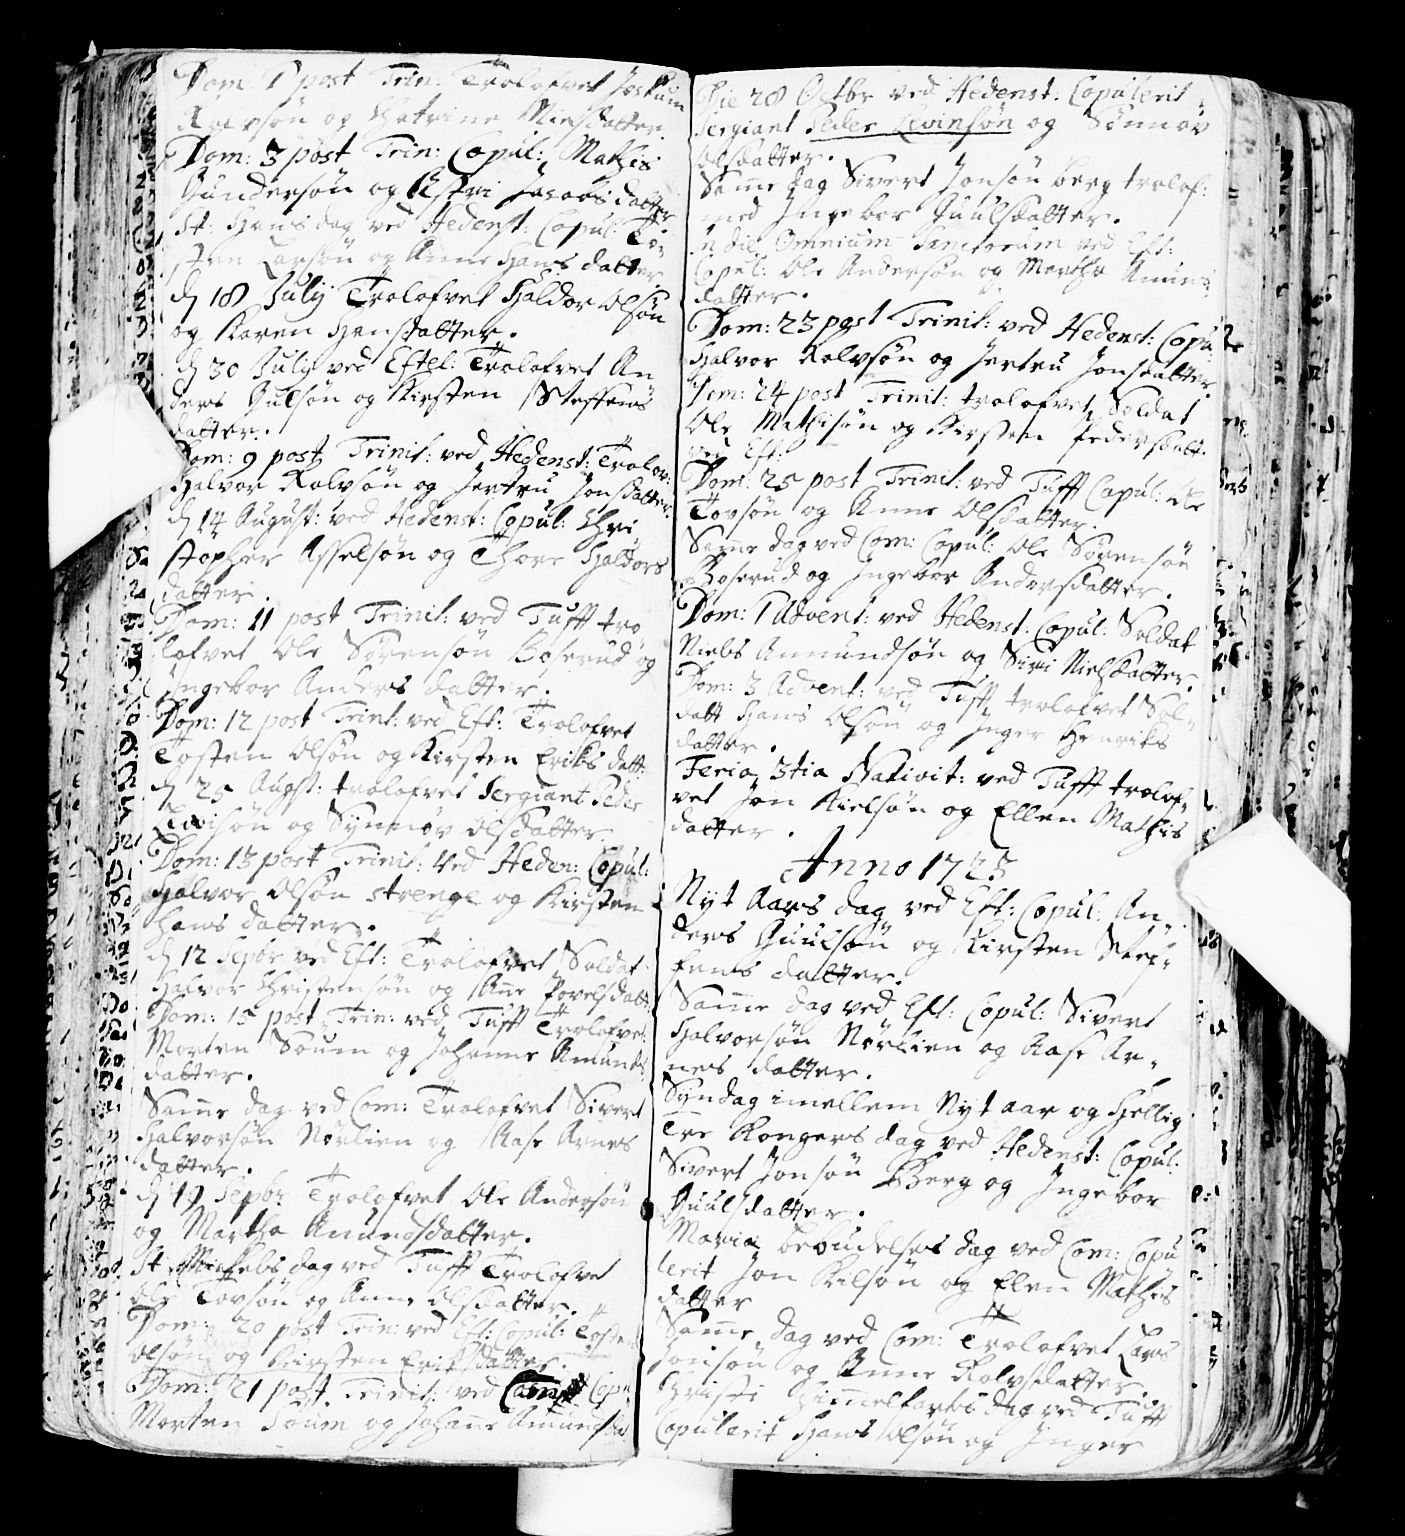 Dom: 1 post Trin: Trolofvet Jochum
Rolvsøn og Chatrine Nielsdatter
Dom: 3 post Trin: Copul: Mathis
Gundersøn og Astri Jacobsdatter
St: Hans dag ved Hedenst: Copul: To-
sten Larsøn og Anne Hans datter
d 18 July Trolofvet Haldor Olsøn
og Karen Hensdatter.
d 30 July ved Eftel: Trolofvet An
ders Gulsøn og Kirsten Steffens
datter.
Dom: 9 post Trinit: ved Hedenst: Trolov:
Halvor Rolvsøn og Jertru Jonsdatter.
d 14 August: ved Hedenst: Copul: Chri
stopher Axselsøn og Thore Haldors
datter.
Dom: 11 post Trinit: ved Tufft tro
lofvet Ole Sørensøn Boserud og
Ingebor Anders datter.
Dom: 12 post Trint: ved Eft: Trolofvet
Tosten Olsøn og Kirsten Eriks datt:
d 25 Augst: trolofvet Sergiant Peder
Levisøn og Synnøv Olsdatter
Dom: 13 post Trinit: ved Heden: Copul:
Halvor Olsøn strenge og Kirsten
Hans datter.
d 12 Sepbr ved Eft: Trolofvet Soldat
Halvor Christensøn og Ane Povelsdatt:
Dom: 15 post Trin: ved Tufft Trolofvet
Morten Soum og Johanne Amunds
datter.
Same dag ved Com: Trolofvet Sivert
Halvorsøn Nørlien og Aase Arnes
datter.
d 19 Sepbr Trolofvet Ole Andersøn
og Martha Anundsdatter.
St Michels dag ved Tufft Trolofvet
Ole Tovsøn og Anne Olsdatter.
Dom: 20 post Trin: ved Eft: Copul: Tosten
Olsøn og Kirsten Eriksdatter.
Dom: 21 post Trinit: ved Com: Copu
Morten Soum og Johane Amundsdat
Die 28 Octbr ved Hedenst: Copulerit
Sergiant Peder Levinsøn og Sønnøv
Olsdatter.
Same dag Sivert Jonsøn berg trolof:
med Ingebor Guulsdatter.
In die Omnium Sanctorum ved Eft:
Copul: Ole Andersøn og Martha Anuns
datter.
Dom: 23 post Trinit: ved Hedenst: Copu
Halvor Rolvsøn og Jertru Jonsdatter.
Dom: 24 post Trinit: trolofvet Soldat
Ole Mathisøn og Kirsten Pedersdatt.
ved Eft:
Dom: 25 post Trinit: ved Tufft Copul: Ole
Tovsøn og Anne Olsdatter.
Same dag ved Com: Copul: Ole Sørensøn
Boserud og Ingebor Andersdatter.
Dom: 1 Advent: ved Hedenst: Copul: Soldat
Niels Amundsøn og Siri Nielsdatter.
Dom: 3 Advent: ved Tufft trolofvet Sol-
datt Hans Olsøn og Inger Henriks
datter.
Feria 3tia Nativit: ved Tufft trolof-
vet Jon Kielsøn og Ellen Mathis
datter.
Anno 1723
Nyt Aars dag ved Eft: Copul: An-
ders Guulsøn og Kirsten Stef-
fens datter.
Same dag ved Eft: Copul: Sivert
Halvorsøn Nørlien og Aase Ar-
nes datter.
Syndag imellem Nyt aar og Hellig
Tre Kongers dag ved Hedenst: Copul:
Sivert Jonsøn Berg og Ingebor
Guulsdatter.
Maria bebudelses dag ved Com: Copu
lerit Jon Kilsøn og Elen Mathis
datter
Same dag ved Com: Trolofvet Lars
Jonsøn og Anne Rolvsdatter.
Christi Himmelfarts dag ved Tufft
Copulerit Hans Olsøn og Inger